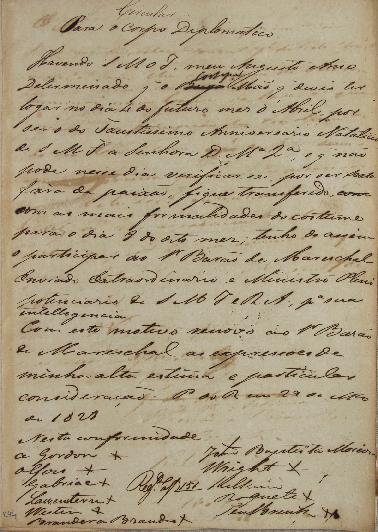 Circular
Para o Corpo Diplomatico
Havendo S M O I, meu Augusto Amo
Determinado q̃ o Cortejo q̃ devia ter
logar no dia 4 do futuro mez d'Abril, por
ser o do Faustissimo Anniversario Natalicio
de S M F a Senhora D. Mª 2ª, e q̃ nao
pode nesse dia verificar-se por ser Sexta
feira da paixão, fique transferido, com
com as mais formalidades do costume
para o dia 7 do dito mez, tenho de assim
o participar ao Sr Barão de Mareschal
Enviado Extraordinario e Ministro Pleni
potenciario de S M I e R A, pª sua
intelligencia
Com este motivo renovo ao Sr Barão
de Mareschal as expressoes de
minha alta estima e particular
consideração. P do R em 29 de Mço
de 1828
Nesta conformidade
a Gordon +
Gabriac +
Lowenstern +
João Baptista Moreira
Wright +